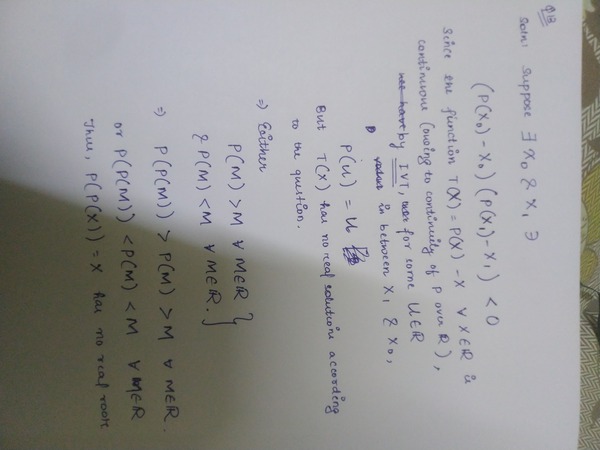 Q18
Soln: Suppose ∃ x₀ & x₁ ∋
(P(x₀) - x₀) (P(x₁) - x₁) < 0
Since the function T(x) = P(x) - x ∀ x ∈ ℝ is
continuous (owing to continuity of P over ℝ),
by IVT, for some U ∈ ℝ
in between x₁ & x₀,
P(u) = u
But T(x) has no real solution according
to the question.
⇒ Either
P(M) > M ∀ M ∈ ℝ }
& P(M) < M ∀ M ∈ ℝ. }
⇒ P(P(M)) > P(M) > M ∀ M ∈ ℝ.
or P(P(M)) < P(M) < M ∀ M ∈ ℝ
Thus, P(P(x)) = x has no real roots